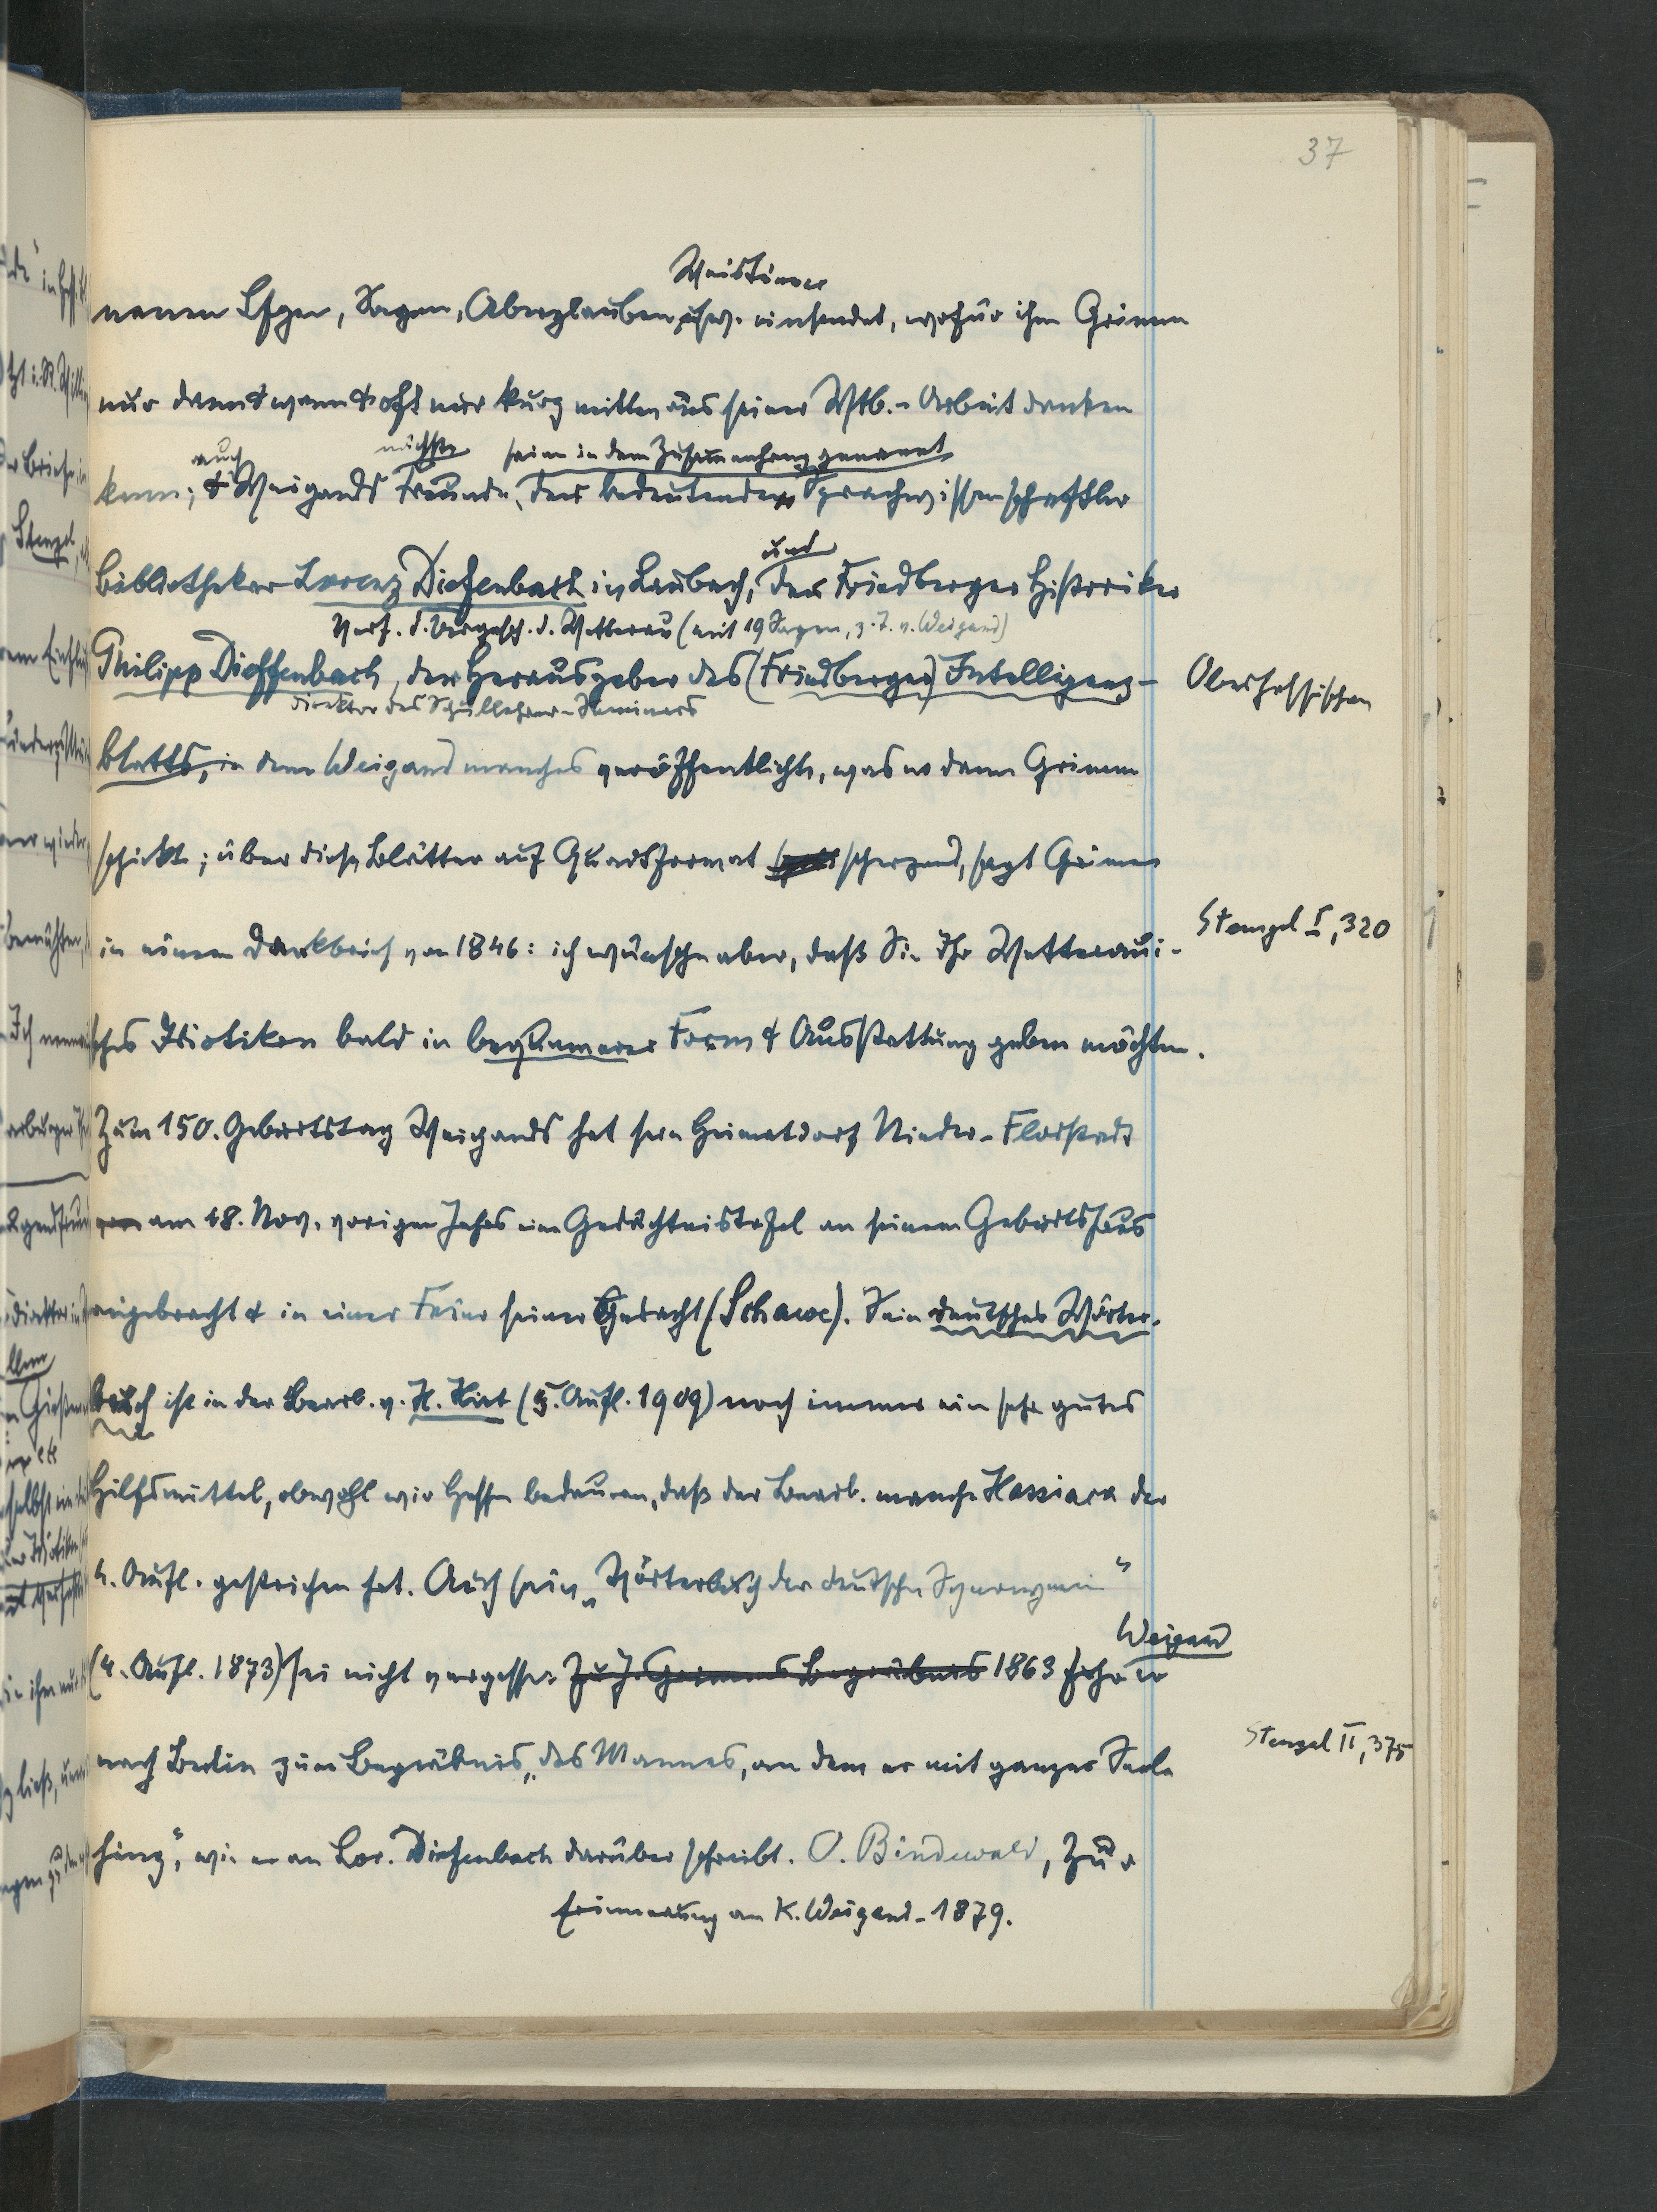 37
Weistümer
neuen Lfgen, Sagen, Aberglauben usw. einsendet, wofür ihm Grimm
nur dann & wann & oft nur kurz mitten aus seiner Wtb.-Arbeit danken
auch nächste seien in dem Zusammenhang genannt
kann; & Weigands Freunde, der bedeutende Sprachwissenschaftler
und
Bibliothekar Lorenz Diefenbach in Laubach, der Friedberger Historiker
Verf. d. Urgesch. d. Wetterau (mit 19 Sagen, z. T. v. Weigand)
Philipp Dieffenbach, der Herausgeber des (Friedberger) Intelligenz-
Oberhessischen
Direktor des Schullehrer-Seminars
blatts, in dem Weigand manches veröffentlicht, was er dann Grimm
schickt; über diese Blätter auf Quartformat scherzend, sagt Grimm
Stengel I, 320
in einem Dankbrief von 1846: ich wünsche aber, daß Sie Ihr Wetteraui-
sches Idiotikon bald in bequemerer Form & Ausstattung geben möchten.
Zum 150. Geburtstag Weigands hat sein Heimatdorf Nieder-Florstadt
am 18. Nov. vorigen Jahres eine Gedächtnistafel an seinem Geburtshaus
angebracht & in einer Feier seiner Gedacht (Schawe). Sein deutsches Wörter-
buch ist in der Bearb. v. H. Hirt (5. Aufl. 1909) noch immer ein sehr gutes
Hilfsmittel, obwohl wir Hessen bedauern, daß der Bearb. manche Hassiaca der
4. Aufl. gestrichen hat. Auch sein „Wörterbuch der deutschen Synonymen"
Weigand
(4. Aufl. 1873) sei nicht vergessen. Zu J. Grimms Begräbnis 1863 fuhr er
Stengel II, 375
nach Berlin zum Begräbnis „des Mannes, an dem er mit ganzer Seele
hing", wie er an Lor. Diefenbach darüber schreibt. O. Bindewald, Zur
Erinnerung an K. Weigand. 1879.